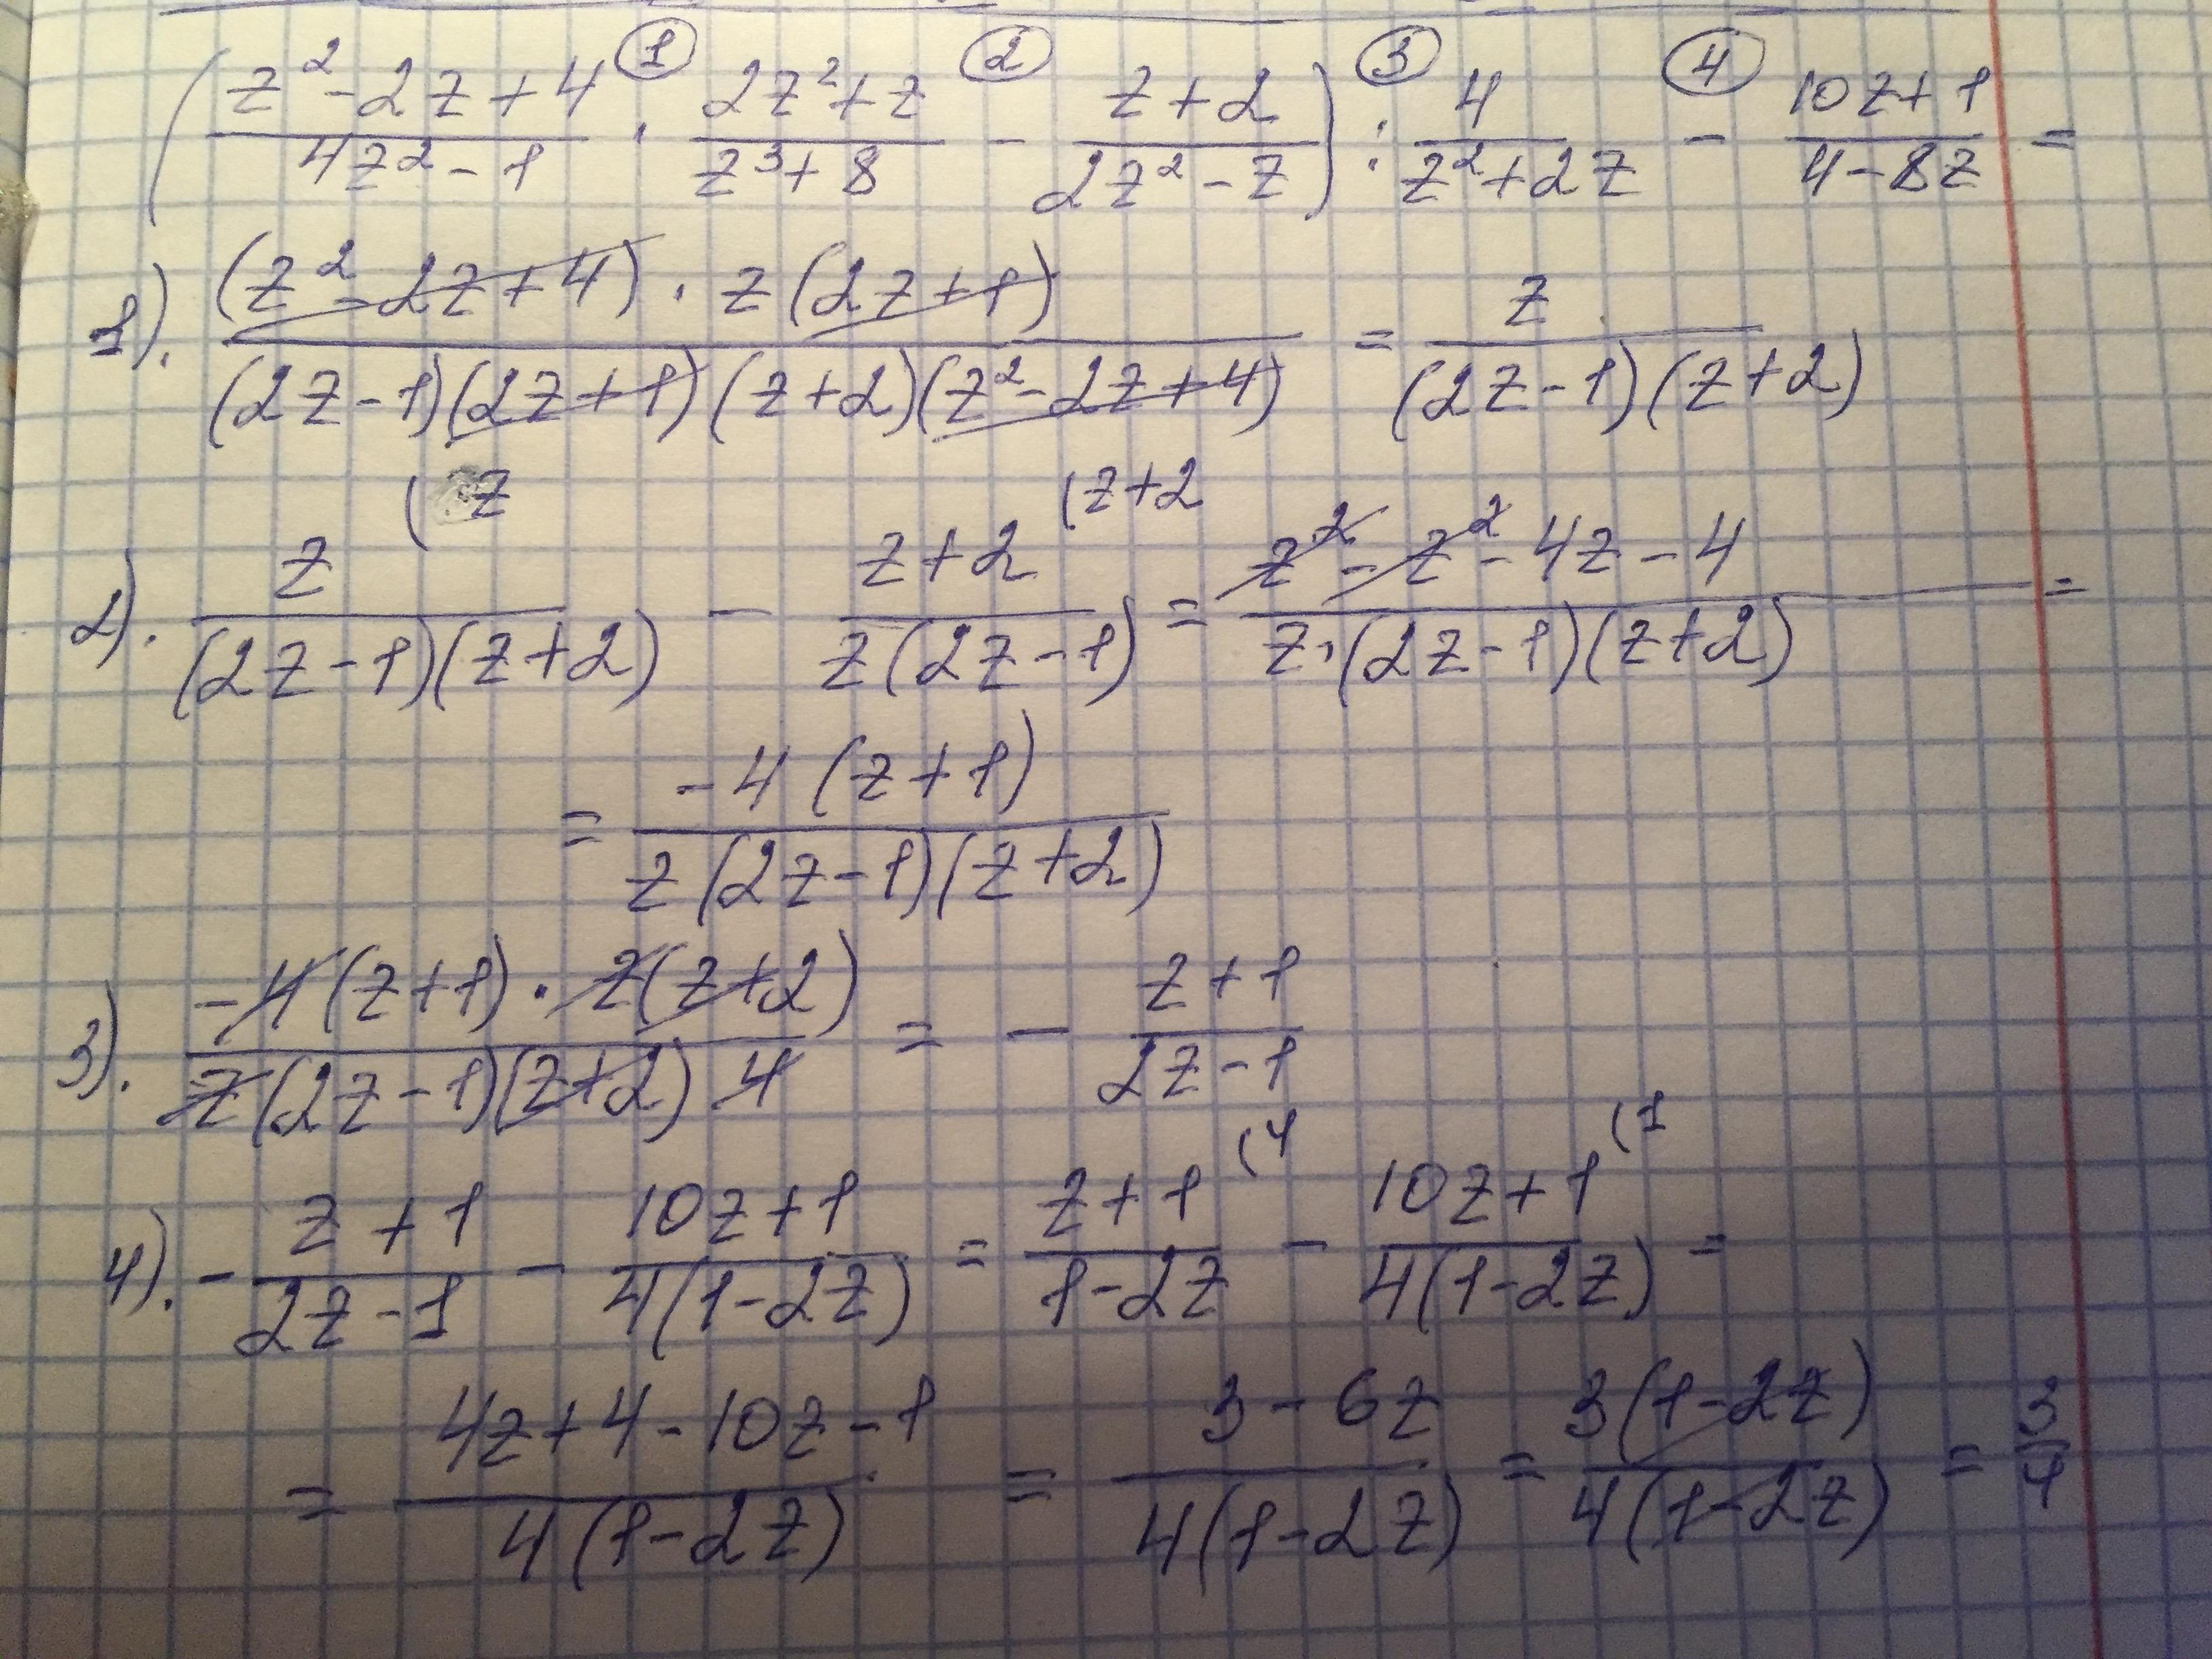 ① ② ③ ④
( (z² - 2z + 4)/(4z² - 1) · (2z² + z)/(z³ + 8) - (z + 2)/(2z² - z) ) : 4/(z² + 2z) - (10z + 1)/(4 - 8z) =
1). ((z² - 2z + 4) · z(2z + 1))/((2z - 1)(2z + 1)(z + 2)(z² - 2z + 4)) = z/((2z - 1)(z + 2))
(z (z+2
2). z/((2z - 1)(z + 2)) - (z + 2)/(z(2z - 1)) = (z² - z² - 4z - 4)/(z·(2z - 1)(z + 2)) =
= (-4(z + 1))/(z(2z - 1)(z + 2))
3). (-4(z + 1) · z(z + 2))/(z(2z - 1)(z + 2) 4) = - (z + 1)/(2z - 1)
(4 (1
4). - (z + 1)/(2z - 1) - (10z + 1)/(4(1 - 2z)) = (z + 1)/(1 - 2z) - (10z + 1)/(4(1 - 2z)) =
= (4z + 4 - 10z - 1)/(4(1 - 2z)) = (3 - 6z)/(4(1 - 2z)) = (3(1 - 2z))/(4(1 - 2z)) = 3/4